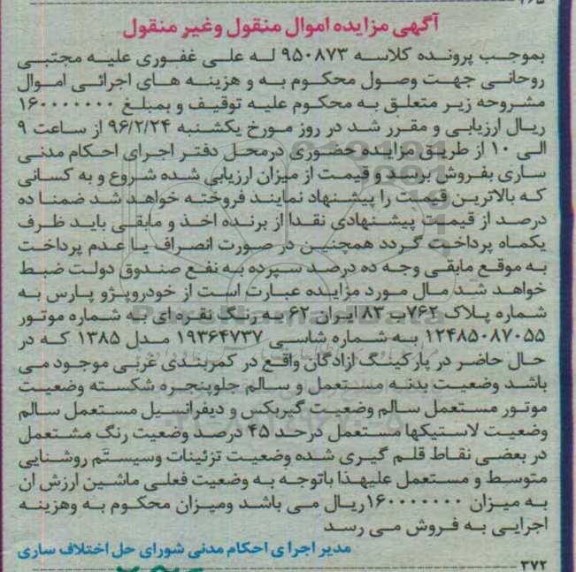 آگهی مزایده اموال منقول وغیر منقول
بموجب پرونده کلاسه ۹۵۰۸۷۳ له علی غفوری علیه مجتبی
روحانی جهت وصول محکوم به و هزینه های اجرائی اموال
مشروحه زیر متعلق به محکوم علیه توقیف و بمبلغ ۱۶۰۰۰۰۰۰۰
ریال ارزیابی و مقرر شد در روز مورخ یکشنبه ۹۶/۲/۲۴ از ساعت ۹
الی ۱۰ از طریق مزایده حضوری درمحل دفتر اجرای احکام مدنی
ساری بفروش برسد و قیمت از میزان ارزیابی شده شروع و به کسانی
که بالاترین قیمت را پیشنهاد نمایند فروخته خواهد شد ضمنا ده
درصد از قیمت پیشنهادی نقدا از برنده اخذ و مابقی باید ظرف
یکماه پرداخت گردد همچنین در صورت انصراف یا عدم پرداخت
به موقع مابقی وجه ده درصد سپرده به نفع صندوق دولت ضبط
خواهد شد مال مورد مزایده عبارت است از خودروپژو پارس به
شماره پلاک ۷۶۲ب ۸۳ ایران ۶۲ به رنگ نقره ای به شماره موتور
۱۲۴۸۵۰۸۷۰۵۵ به شماره شاسی ۱۹۳۶۴۷۳۷ مدل ۱۳۸۵ که در
حال حاضر در پارکینگ ازادگان واقع در کمربندی غربی موجود می
باشد وضعیت بدنه مستعمل و سالم جلوپنجره شکسته وضعیت
موتور مستعمل سالم وضعیت گیربکس و دیفرانسیل مستعمل سالم
وضعیت لاستیکها مستعمل درحد ۴۵ درصد وضعیت رنگ مشتعمل
در بعضی نقاط قلم گیری شده وضعیت تزئینات وسیستم روشنایی
متوسط و مستعمل علیهذا باتوجه به وضعیت فعلی ماشین ارزش ان
به میزان ۱۶۰۰۰۰۰۰۰ریال می باشد ومیزان محکوم به وهزینه
اجرایی به فروش می رسد
مدیر اجرا ی احکام مدنی شورای حل اختلاف ساری
۳۷۲